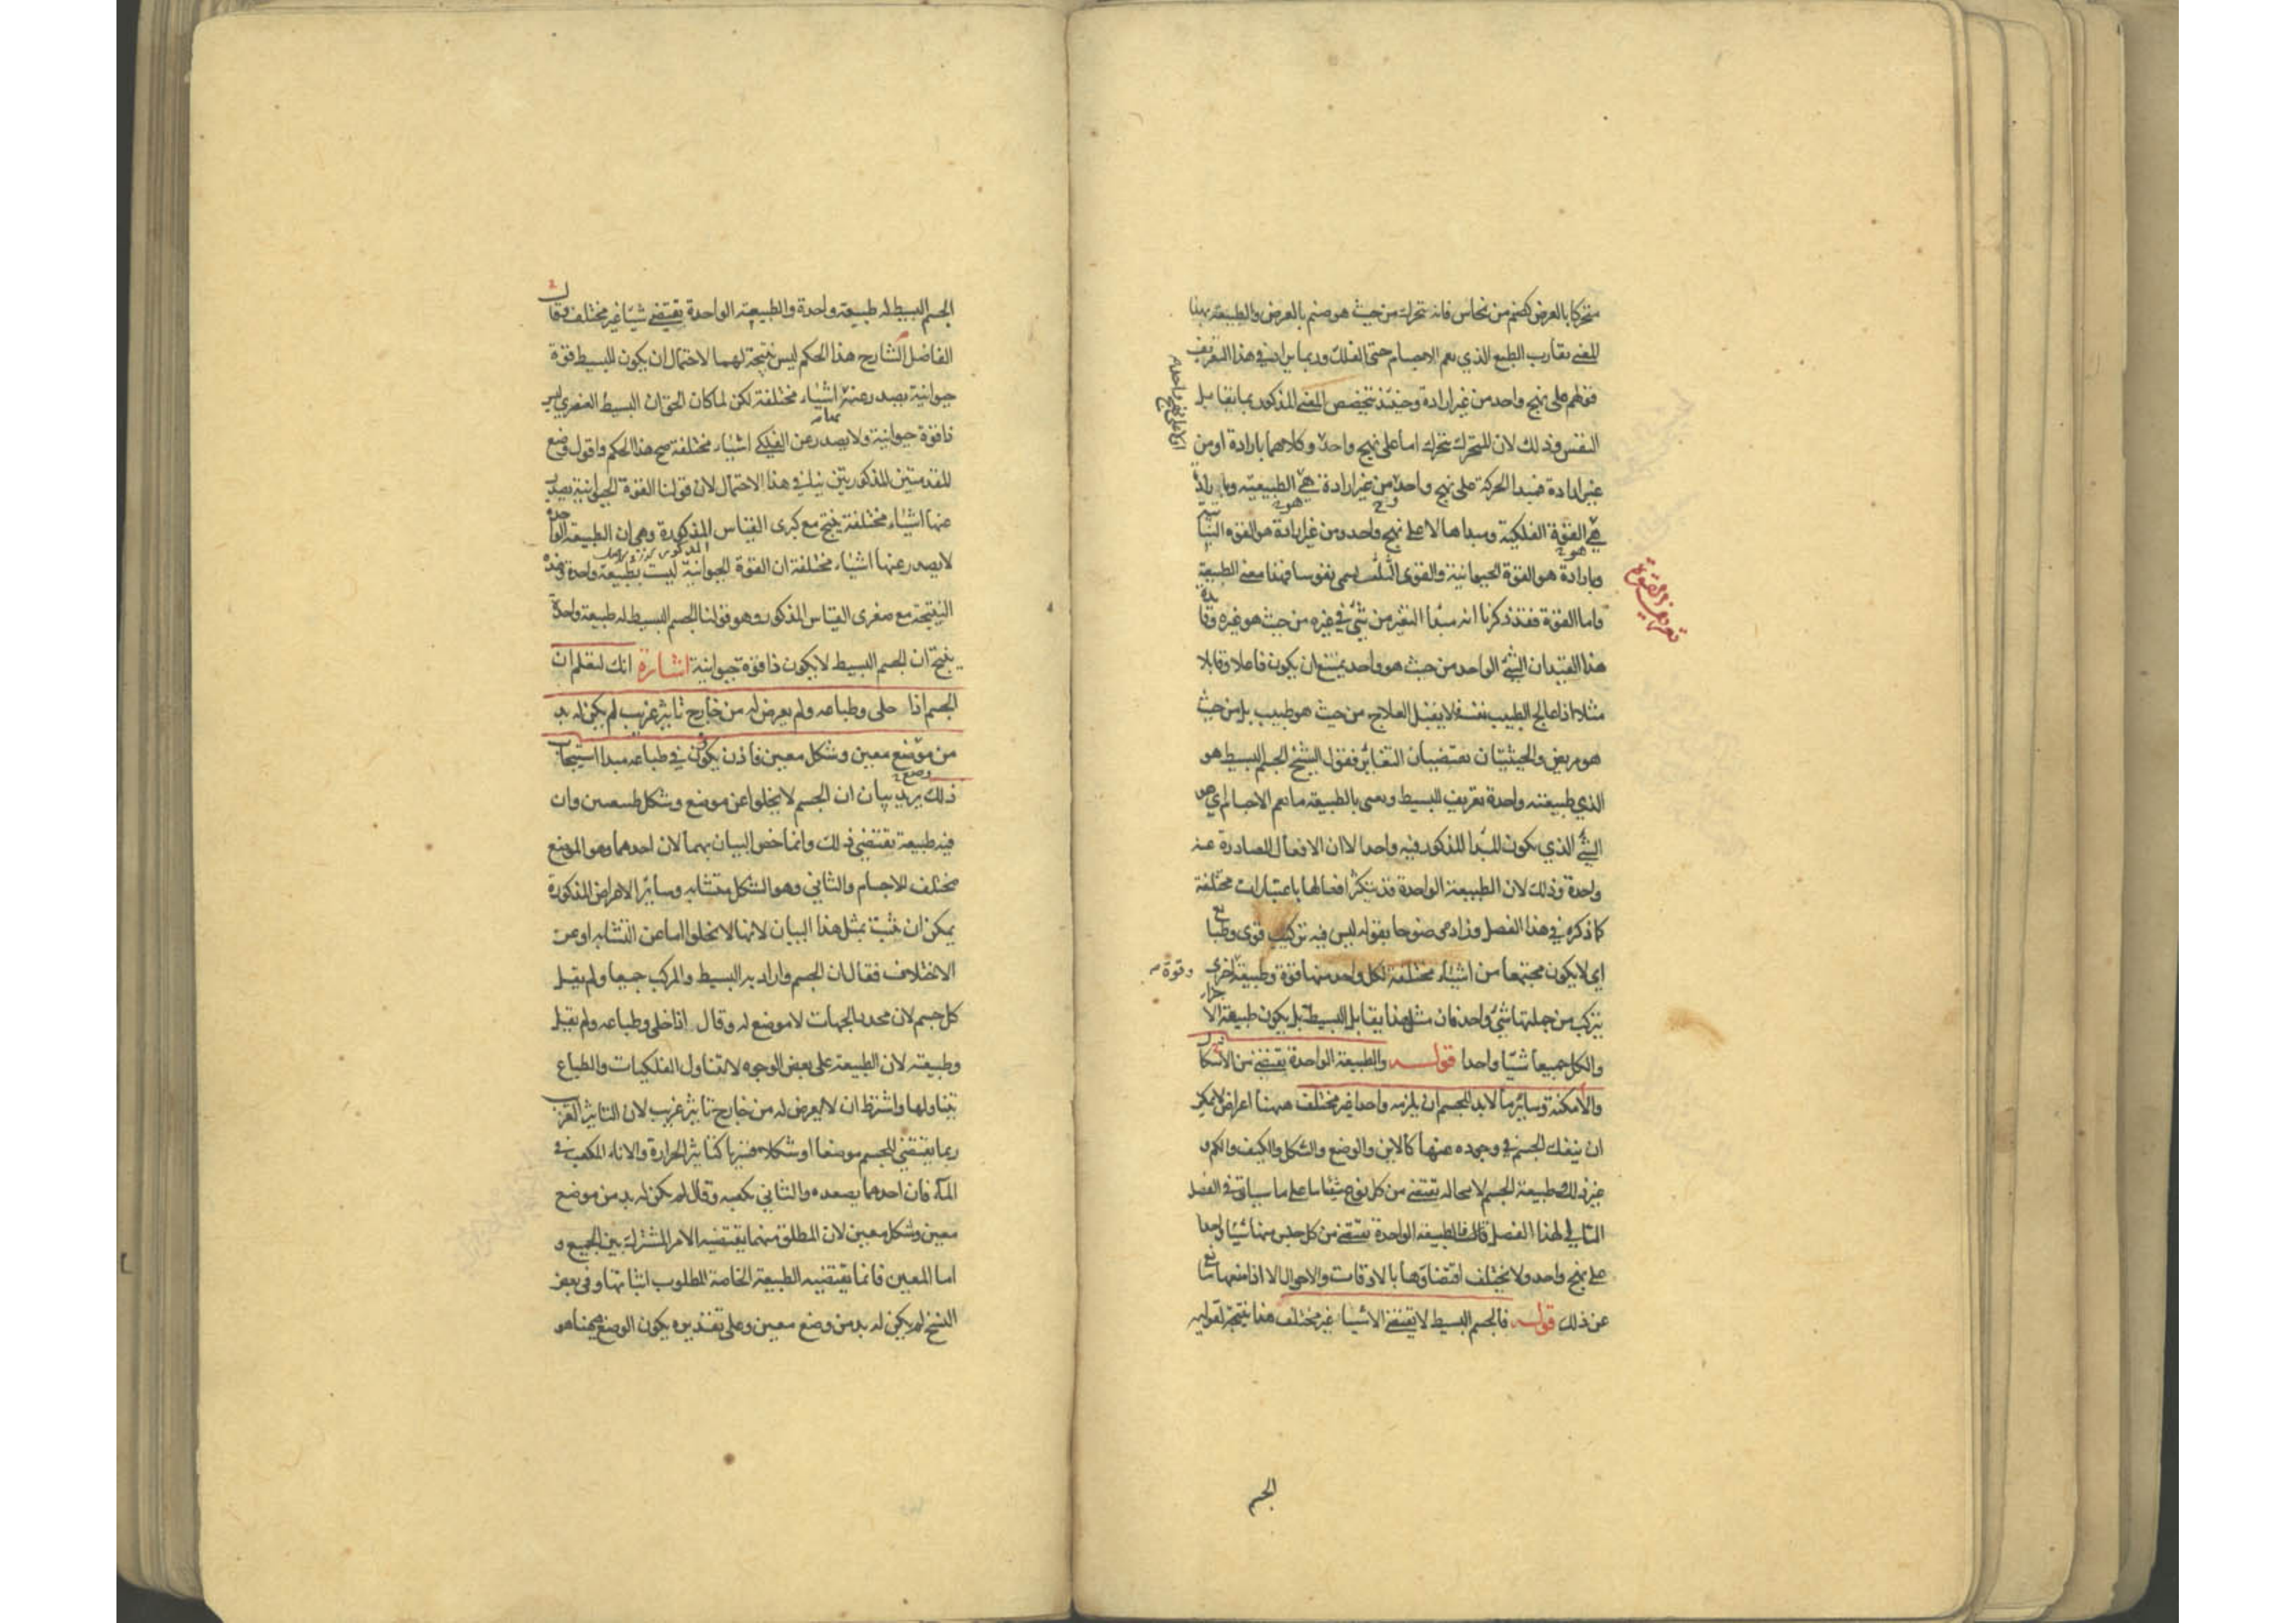 متحركا بالعرض كصنم من نحاس فانه تتحرك من حيث هو صنم بالعرض والطبيعة بهذا
المعنى يقارب الطبع الذي يعم الاجسام حتى الفلك وربما يزاد في هذا التعريف
قولهم على نهج واحد من غير ارادة وحينئذ يتخصص المعنى المذكور بما يقابل
النفس وذلك لان المتحرك يتحرك اما على نهج واحد وكلاهما بارادة او من
اولا على نهج واحد
غير ارادة فمبدا الحركة على نهج واحد من غير ارادة هي الطبيعية وبارادة
هي القوة الفلكية ومبداها لا على نهج واحد ومن غير ارادة هو القوة النباتية
وبارادة هو القوة الحيوانية والقوى الثلث يسمى نفوسا فهذا معنى الطبيعة
تعريف القوة
واما القوة فقد ذكرنا انه مبدأ التغير من شيء في غيره من حيث هو غيره وفائدة
هذا القيد ان الشيء الواحد من حيث هو واحد يمتنع ان يكون فاعلا وقابلا
مثلا اذا عالج الطبيب نفسه لا يقبل العلاج من حيث هو طبيب بل من حيث
هو مريض والحيثيتان يقتضيان التغاير فقول الشيخ الجسم البسيط هو
الذي طبيعته واحدة تعريف للبسيط ويعنى بالطبيعة ما يعم الاجسام اي هو
الشيء الذي يكون المبدأ المذكور فيه واحدا لا ان الافعال الصادرة عنه
واحدة وذلك لان الطبيعة الواحدة قد يتكثر افعالها باعتبارات مختلفة
كما ذكره في هذا الفصل وزاده وضوحا بقوله ليس فيه تركيب قوى وطبائع
اي لا يكون مجتمعا من اشياء مختلفة لكل واحد منها قوة وطبيعة اخرى
وقوة
يتركب من جملتها شيء واحد فان مثل هذا يقابل البسيط بل يكون طبيعة الاجزاء
والكل جميعا شيئا واحدا قوله والطبيعة الواحدة يقتضى من الاشكال
والامكنة وسائر ما لا بد للجسم ان يلزمه واحدا غير مختلف ههنا اعراض لا يمكن
ان ينفك الجسم في وجوده عنها كالاين والوضع والشكل والكيف والكم و
غير ذلك وطبيعة الجسم لا محالة يقتضى من كل نوع شيئا ما على ما سياتي في الفصل
التالي لهذا الفصل قال فالطبيعة الواحدة يقتضى من كل جنس منها شيئا واحدا
على نهج واحد ولا يختلف اقتضاؤها بالاوقات والاحوال الا اذا منعها مانع
عن ذلك قوله فالجسم البسيط لا يقتضى الا شيئا غير مختلف هذا نتيجة لقوليه
الجسم
الجسم البسيط له طبيعة واحدة والطبيعة الواحدة يقتضى شيئا غير مختلف وقال
الفاضل الشارح هذا الحكم ليس نتيجة لهما لاحتمال ان يكون للبسيط قوة
حيوانية يصدر عنها اشياء مختلفة لكن لما كان الحق ان البسيط العنصري ليس
ذا قوة حيوانية ولا يصدر عن الفلكي اشياء مختلفة صح هذا الحكم واقول وضع
المقدمتين المذكورتين ينافي هذا الاحتمال لان قولنا القوة الحيوانية يصدر
عنها اشياء مختلفة ينتج مع كبرى القياس المذكورة وهي ان الطبيعة الواحدة
لا يصدر عنها اشياء مختلفة ان القوة الحيوانية ليست بطبيعة واحدة وهذه
النتيجة مع صغرى القياس المذكور وهو قولنا الجسم البسيط له طبيعة واحدة
ينتج ان الجسم البسيط لا يكون ذا قوة حيوانية اشارة انك لتعلم ان
الجسم اذا خلى وطباعه ولم يعرض له من خارج تاثير غريب لم يكن له بد
من موضع معين وشكل معين فاذن يكون في طباعه مبدا استيجاب
ذلك يريد بيان ان الجسم لا يخلوا عن موضع وشكل طبيعيين وان
فيه طبيعة تقتضى ذلك وانما خص البيان بهما لان احدهما وهو الموضع
مختلف للاجسام والثاني وهو الشكل متشابه وسائر الاعراض المذكورة
يمكن ان يثبت بمثل هذا البيان لانها لا تخلوا اما عن التشابه او عن
الاختلاف فقال ان الجسم واراد به البسيط والمركب جميعا ولم يقل
كل جسم لان محدد الجهات لا موضع له وقال اذا خلى وطباعه ولم يقل
وطبيعته لان الطبيعة على بعض الوجوه لا تتناول الفلكيات والطباع
يتناولها واشترط ان لا يعرض له من خارج تاثير غريب لان التاثير الغريب
ربما يقتضى للجسم موضعا او شكلا قسريا كتاثير الحرارة والاناء المكعب في
الماء فان احدهما يصعده والثاني يكعبه وقال لم يكن له بد من موضع
معين وشكل معين لان المطلق منهما يقتضيه الامر المشترك بين الجميع و
اما المعين فانما يقتضيه الطبيعة الخاصة المطلوب اثباتها وفي بعض
النسخ لم يكن له بد من وضع معين وعلى تقديره يكون الوضع ههنا هو